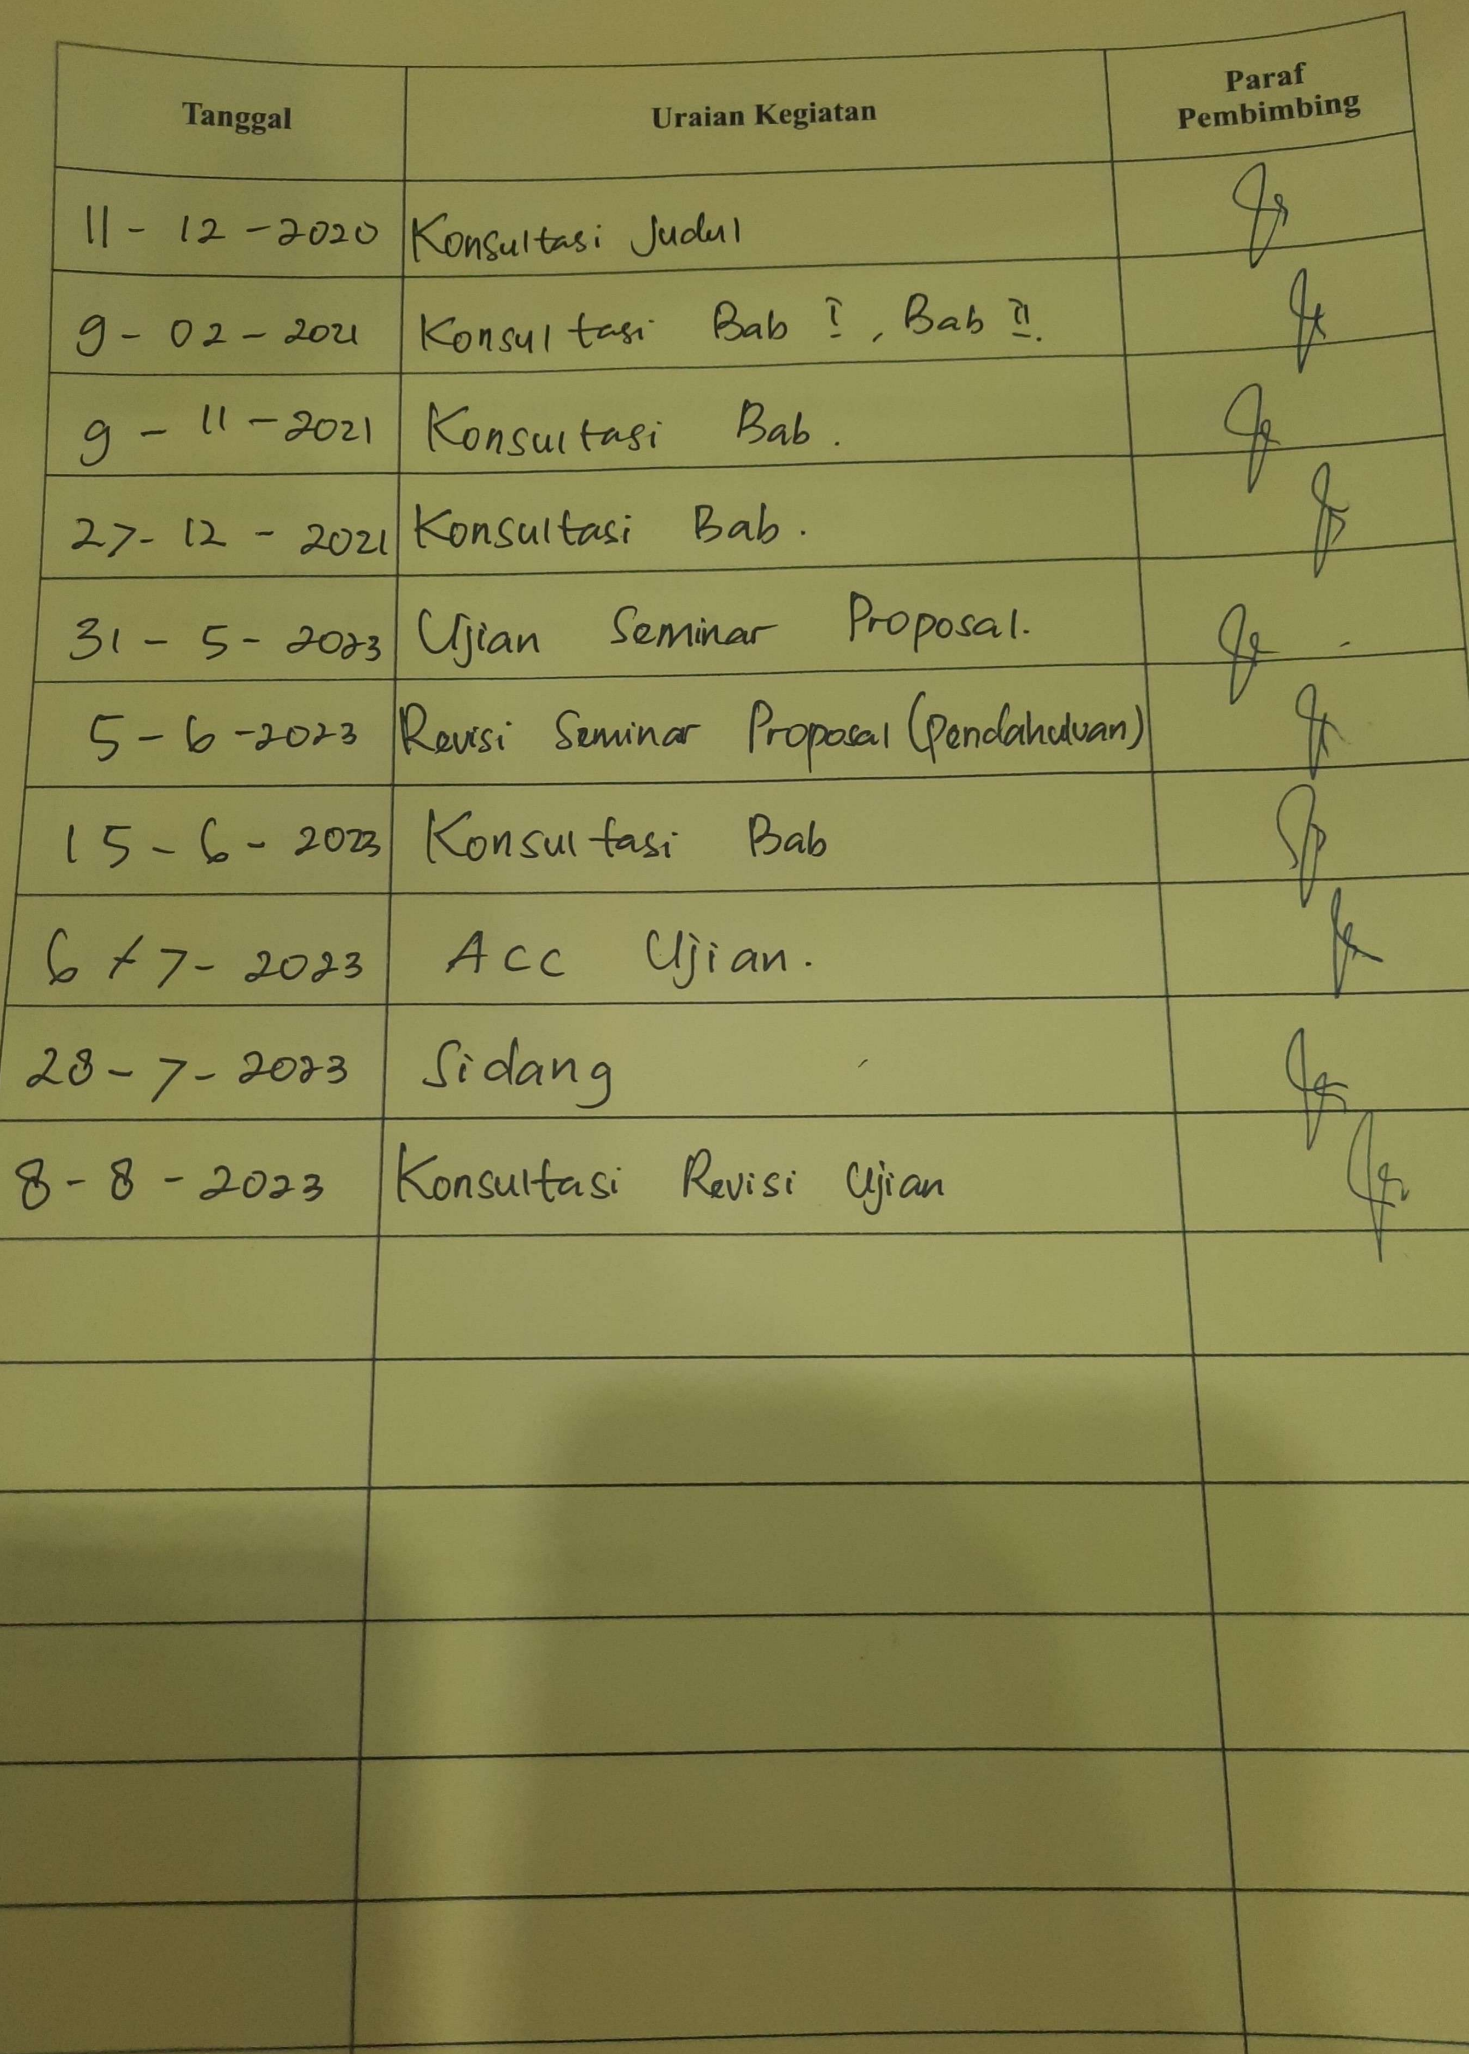 Tanggal Uraian Kegiatan Paraf
Pembimbing
11 - 12 - 2020 Konsultasi Judul
9 - 02 - 2021 Konsultasi Bab I, Bab II.
9 - 11 - 2021 Konsultasi Bab.
27 - 12 - 2021 Konsultasi Bab.
31 - 5 - 2023 Ujian Seminar Proposal.
5 - 6 - 2023 Revisi Seminar Proposal (Pendahuluan)
15 - 6 - 2023 Konsultasi Bab
6 - 7 - 2023 Acc Ujian.
28 - 7 - 2023 Sidang
8 - 8 - 2023 Konsultasi Revisi Ujian